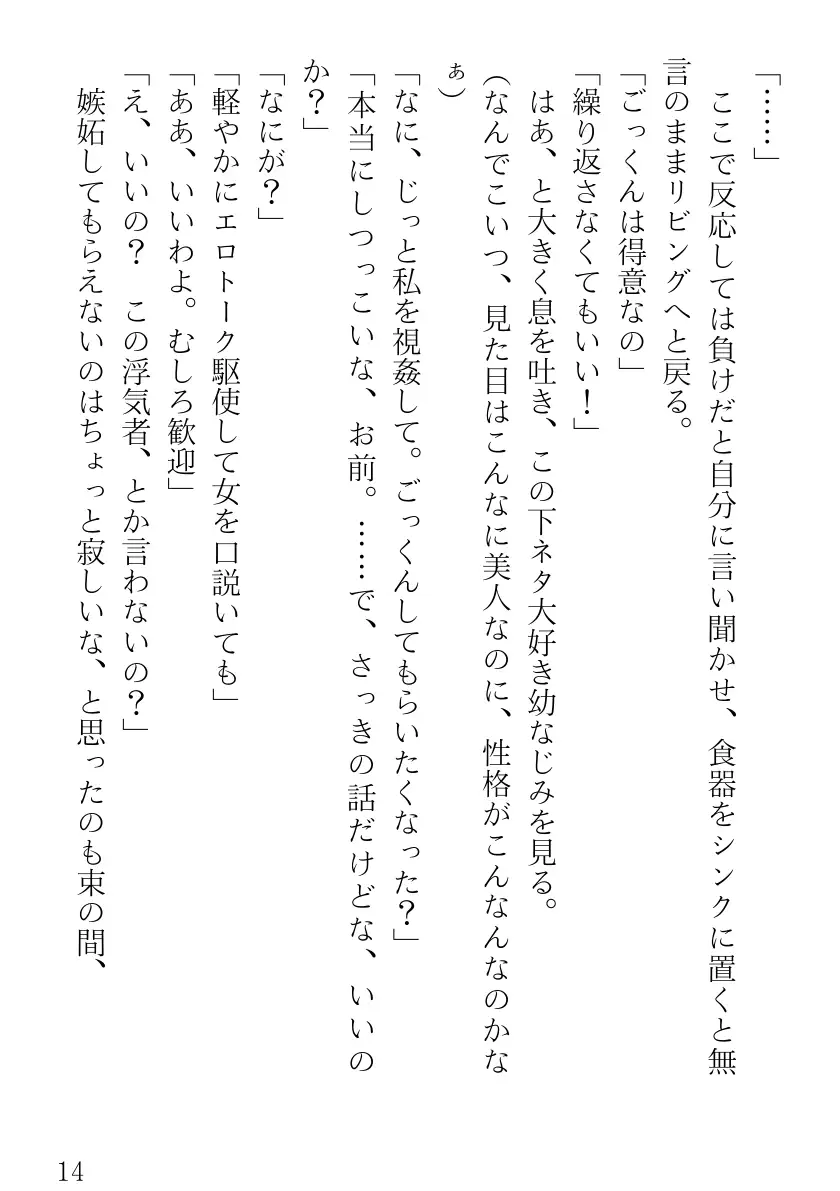 「……」
　ここで反応しては負けだと自分に言い聞かせ、食器をシンクに置くと無
言のままリビングへと戻る。
「ごっくんは得意なの」
「繰り返さなくてもいい！」
　はあ、と大きく息を吐き、この下ネタ大好き幼なじみを見る。
（なんでこいつ、見た目はこんなに美人なのに、性格がこんなんなのかな
ぁ）
「なに、じっと私を視姦して。ごっくんしてもらいたくなった？」
「本当にしつっこいな、お前。……で、さっきの話だけどな、いいの
か？」
「なにが？」
「軽やかにエロトーク駆使して女を口説いても」
「ああ、いいわよ。むしろ歓迎」
「え、いいの？　この浮気者、とか言わないの？」
　嫉妬してもらえないのはちょっと寂しいな、と思ったのも束の間、
14